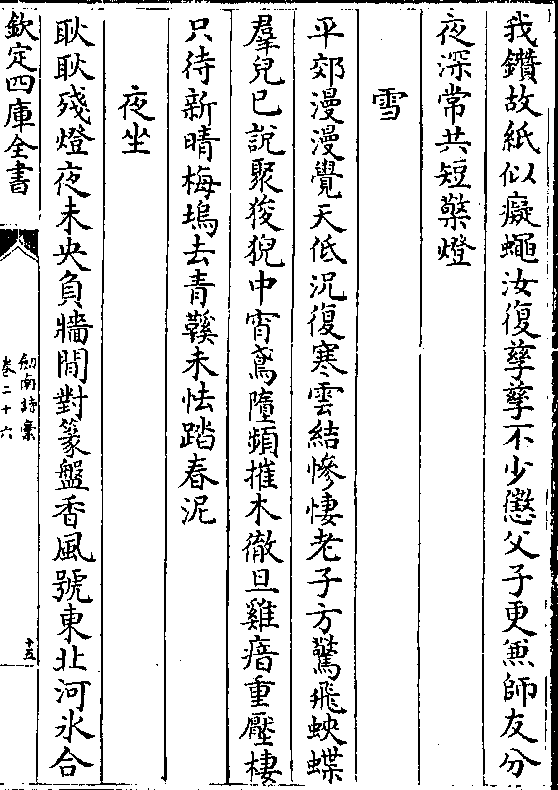 我鑽故紙似癡蠅汝復孳孳不少懲父子更兼師友分
夜深常共短檠燈
雪
平郊漫漫覺天低況復寒雲結慘悽老子方驚飛蛺蝶
羣兒已說聚狻猊中宵鳶墮頻摧木徹旦雞瘖重壓棲
只待新晴梅塢去青鞵未怯踏春泥
夜坐
耿耿殘燈夜未央負牆閒對篆盤香風號東北河氷合
欽定四庫全書
劒南詩稾
卷二十六
十五